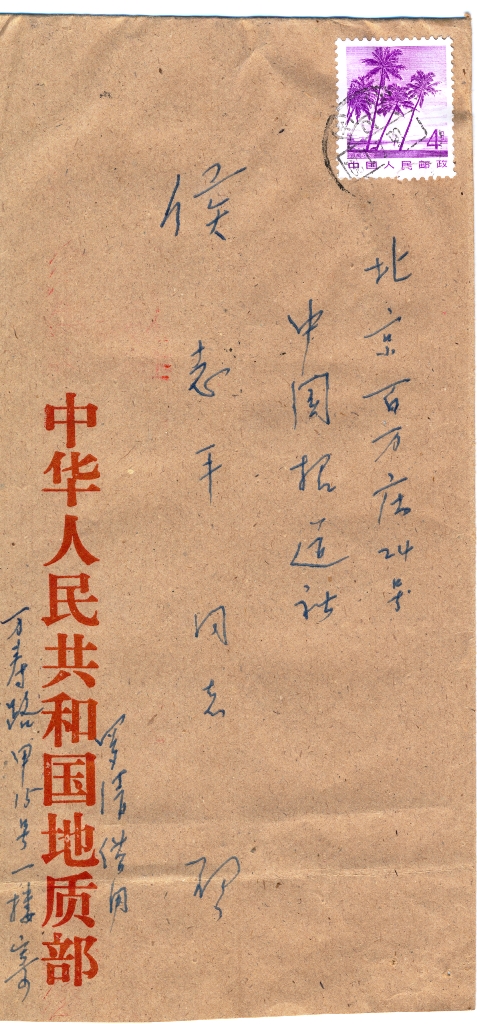 4分
中国人民邮政
北京百万庄24号
中国报道社
侯志平同志
中华人民共和国地质部
借用
万寿路甲15号一楼寄